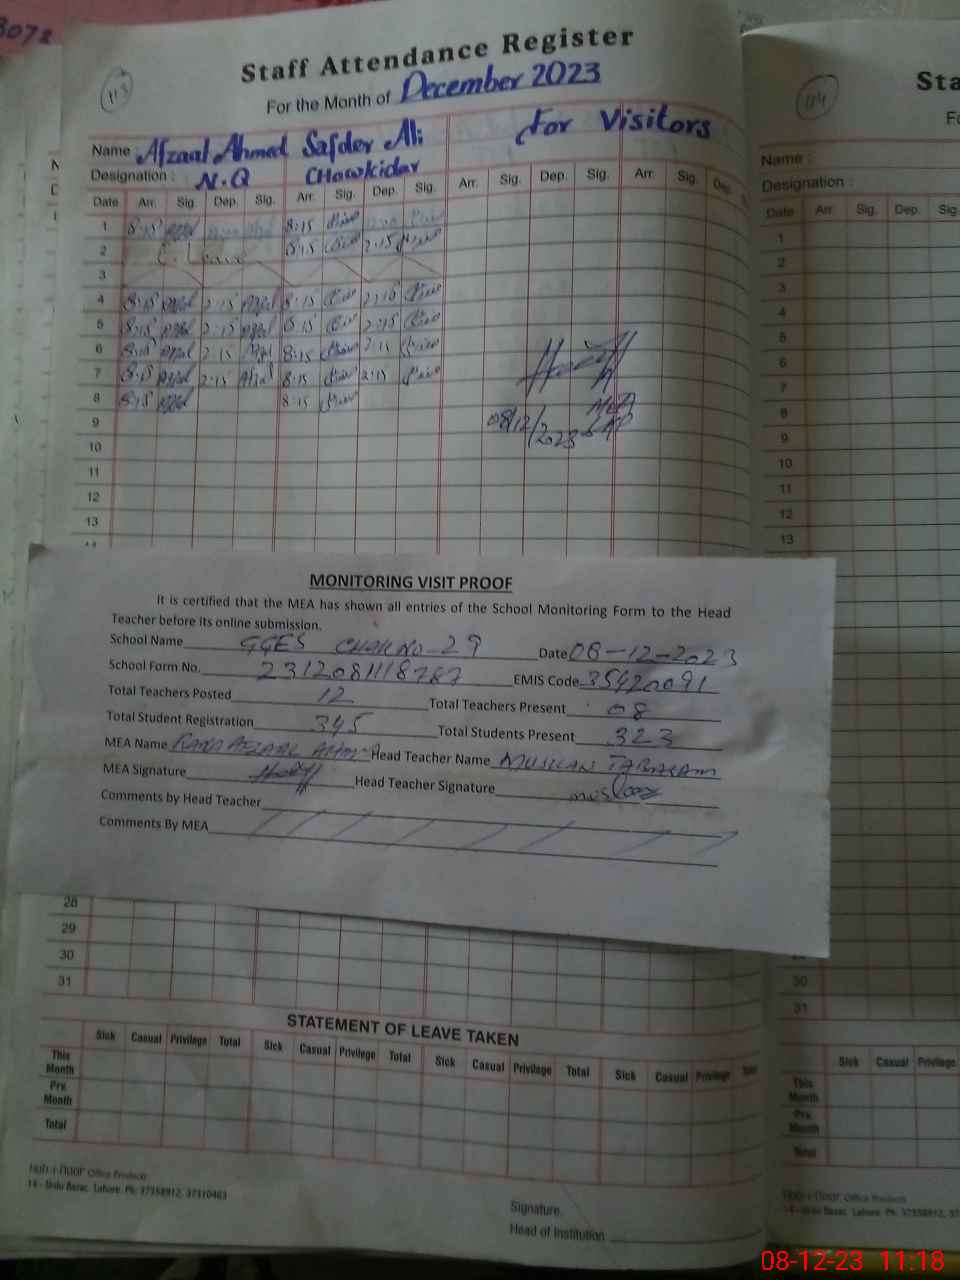 3072
113
Staff Attendance Register
For the Month of December 2023
Name : Afzaal Ahmed Safder Ali for Visitors
Designation : N.Q CHowkidar
Date Arr. Sig. Dep. Sig. Arr. Sig. Dep. Sig. Arr. Sig. Dep. Sig. Arr. Sig. Dep.
1 8:15 8:15
2 C. Leave 8:15 2:15
3
4 8:15 2:15 8:15 2:15
5 8:15 2:15 8:15 2:15
6 8:15 2:15 8:15 2:15
7 8:15 2:15 8:15 2:15
8 8:15 8:15
MEA
08/12/2023
9
10
11
12
13
MONITORING VISIT PROOF
It is certified that the MEA has shown all entries of the School Monitoring Form to the Head
Teacher before its online submission.
School Name GGES CHAK NO 29 Date 08-12-2023
School Form No. 2312081118787 EMIS Code 35420091
Total Teachers Posted 12 Total Teachers Present 08
Total Student Registration 345 Total Students Present 323
MEA Name RANA AFZAAL Head Teacher Name MUSKAN TABASSAM
MEA Signature Head Teacher Signature
Comments by Head Teacher
Comments By MEA
28
29
30
31
STATEMENT OF LEAVE TAKEN
Sick Casual Privilege Total Sick Casual Privilege Total Sick Casual Privilege Total Sick Casual Privilege Total
This Month
Prv. Month
Total
Office Products
14 - Urdu Bazar, Lahore. Ph: 37358912, 37310463
Signature
Head of Institution
114
Sta
Fo
Name :
Designation :
Date Arr. Sig. Dep. Sig.
1
2
3
4
5
6
7
8
9
10
11
12
13
30
31
Sick Casual Privilege
This Month
Prv. Month
Total
Office Products
14 - Urdu Bazar, Lahore. Ph: 37358912, 37
08-12-23 11:18